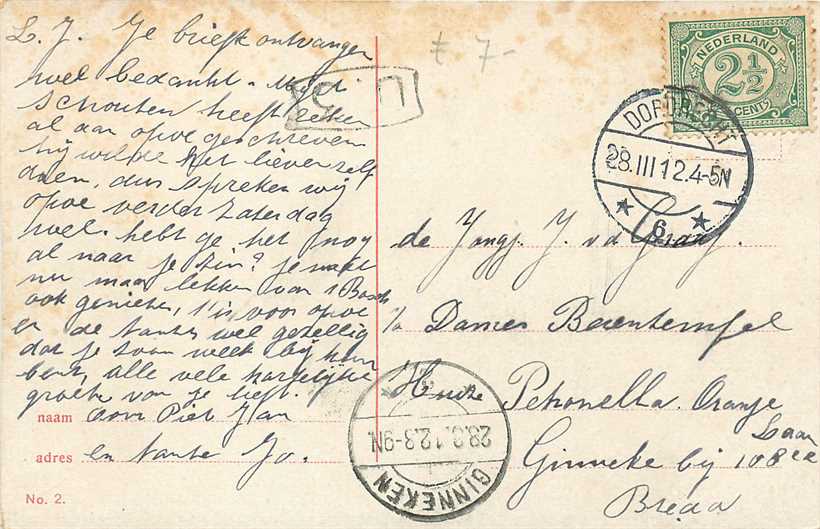 L. J. Je brief ontvangen
wel bedankt. Mijnh
Schouten heeft zeker
al aan opoe geschreven
hij wilde het liever zelf
doen, dus spreken wij
opoe verder Zaterdag
wel. hebt ge het nog
al naar je zin? Je moet
nu maar lekker van 't Bosch
ook genieten, 't is voor opoe
en de tantes wel gezellig
dat je zoon week bij hun
bent, alle vele hartelijke
groeten van je liefh.
naam oom Piet Jan
adres en tante Jo.
No. 2.
f 7-
NEDERLAND
2 1/2
CENT
DORDRECHT
28.III 12.4-5N
6
de Jongj. J. v d Graaf.
p/a Dames Beentempel
Huize Petronella. Oranje
Laan
Ginneke bij 108 ea
Breda
28.3.12.3-9N
GINNEKEN